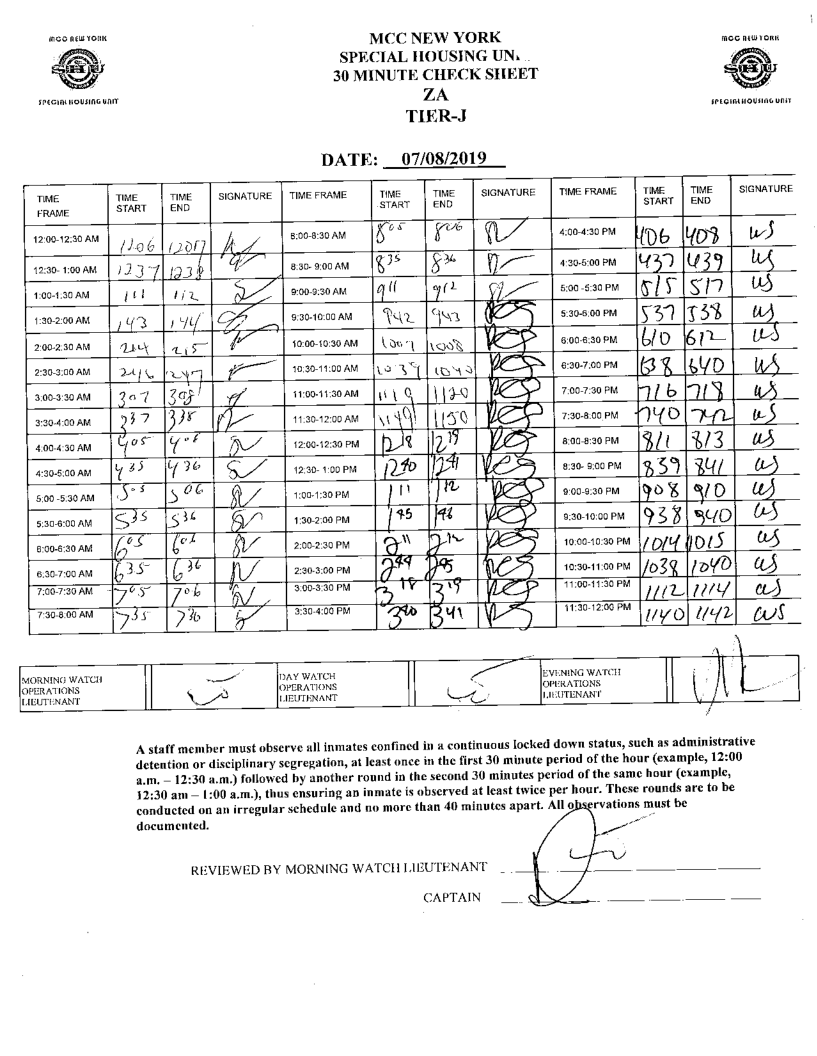 MCC NEW YORK
SHU
SPECIAL HOUSING UNIT
MCC NEW YORK
SPECIAL HOUSING UN
30 MINUTE CHECK SHEET
ZA
TIER-J
MCC NEW YORK
SHU
SPECIAL HOUSING UNIT
DATE: 07/08/2019
TIME FRAME TIME START TIME END SIGNATURE TIME FRAME TIME START TIME END SIGNATURE TIME FRAME TIME START TIME END SIGNATURE
12:00-12:30 AM 1206 1207 8:00-8:30 AM 805 806 4:00-4:30 PM 406 408 WS
12:30- 1:00 AM 1237 1238 8:30- 9:00 AM 835 836 4:30-5:00 PM 437 439 WS
1:00-1:30 AM 111 112 9:00-9:30 AM 911 912 5:00 -5:30 PM 515 517 WS
1:30-2:00 AM 143 144 9:30-10:00 AM 942 943 5:30-6:00 PM 537 538 WS
2:00-2:30 AM 214 215 10:00-10:30 AM 1007 1008 6:00-6:30 PM 610 612 WS
2:30-3:00 AM 246 247 10:30-11:00 AM 1039 1040 6:30-7:00 PM 638 640 WS
3:00-3:30 AM 307 308 11:00-11:30 AM 1119 1120 7:00-7:30 PM 716 718 WS
3:30-4:00 AM 337 338 11:30-12:00 AM 1149 1150 7:30-8:00 PM 740 742 WS
4:00-4:30 AM 405 406 12:00-12:30 PM 1218 1219 8:00-8:30 PM 811 813 WS
4:30-5:00 AM 435 436 12:30- 1:00 PM 1240 1241 8:30- 9:00 PM 839 841 WS
5:00 -5:30 AM 505 506 1:00-1:30 PM 111 112 9:00-9:30 PM 908 910 WS
5:30-6:00 AM 535 536 1:30-2:00 PM 145 146 9:30-10:00 PM 938 940 WS
6:00-6:30 AM 605 606 2:00-2:30 PM 211 212 10:00-10:30 PM 1014 1015 WS
6:30-7:00 AM 635 636 2:30-3:00 PM 244 245 10:30-11:00 PM 1038 1040 WS
7:00-7:30 AM 705 706 3:00-3:30 PM 318 319 11:00-11:30 PM 1112 1114 WS
7:30-8:00 AM 735 736 3:30-4:00 PM 340 341 11:30-12:00 PM 1140 1142 WS
MORNING WATCH OPERATIONS LIEUTENANT
DAY WATCH OPERATIONS LIEUTENANT
EVENING WATCH OPERATIONS LIEUTENANT
A staff member must observe all inmates confined in a continuous locked down status, such as administrative
detention or disciplinary segregation, at least once in the first 30 minute period of the hour (example, 12:00
a.m. – 12:30 a.m.) followed by another round in the second 30 minutes period of the same hour (example,
12:30 am – 1:00 a.m.), thus ensuring an inmate is observed at least twice per hour. These rounds are to be
conducted on an irregular schedule and no more than 40 minutes apart. All observations must be
documented.
REVIEWED BY MORNING WATCH LIEUTENANT
CAPTAIN